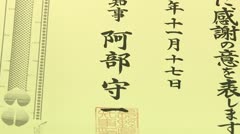 に感謝の意を表します
年十一月十七日
知事 阿部守一